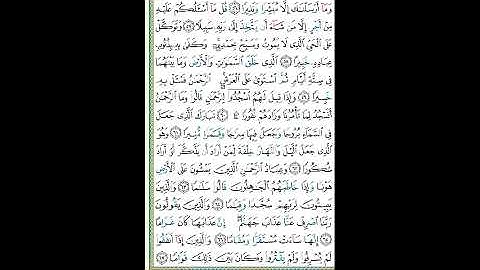 وَمَا أَرْسَلْنَاكَ إِلَّا مُبَشِّرًا وَنَذِيرًا ۝٥٦ قُلْ مَا أَسْـَٔلُكُمْ عَلَيْهِ
مِنْ أَجْرٍ إِلَّا مَن شَاءَ أَن يَتَّخِذَ إِلَىٰ رَبِّهِ سَبِيلًا ۝٥٧ وَتَوَكَّلْ
عَلَى الْحَيِّ الَّذِي لَا يَمُوتُ وَسَبِّحْ بِحَمْدِهِ وَكَفَىٰ بِهِ بِذُنُوبِ
عِبَادِهِ خَبِيرًا ۝٥٨ الَّذِي خَلَقَ السَّمَٰوَٰتِ وَالْأَرْضَ وَمَا بَيْنَهُمَا
فِي سِتَّةِ أَيَّامٍ ثُمَّ اسْتَوَىٰ عَلَى الْعَرْشِ الرَّحْمَٰنُ فَسْـَٔلْ بِهِ
خَبِيرًا ۝٥٩ وَإِذَا قِيلَ لَهُمُ اسْجُدُوا لِلرَّحْمَٰنِ قَالُوا وَمَا الرَّحْمَٰنُ
أَنَسْجُدُ لِمَا تَأْمُرُنَا وَزَادَهُمْ نُفُورًا ۩ ۝٦٠ تَبَارَكَ الَّذِي جَعَلَ
فِي السَّمَاءِ بُرُوجًا وَجَعَلَ فِيهَا سِرَاجًا وَقَمَرًا مُّنِيرًا ۝٦١ وَهُوَ
الَّذِي جَعَلَ اللَّيْلَ وَالنَّهَارَ خِلْفَةً لِّمَنْ أَرَادَ أَن يَذَّكَّرَ أَوْ أَرَادَ
شُكُورًا ۝٦٢ وَعِبَادُ الرَّحْمَٰنِ الَّذِينَ يَمْشُونَ عَلَى الْأَرْضِ
هَوْنًا وَإِذَا خَاطَبَهُمُ الْجَاهِلُونَ قَالُوا سَلَامًا ۝٦٣ وَالَّذِينَ
يَبِيتُونَ لِرَبِّهِمْ سُجَّدًا وَقِيَامًا ۝٦٤ وَالَّذِينَ يَقُولُونَ
رَبَّنَا اصْرِفْ عَنَّا عَذَابَ جَهَنَّمَ إِنَّ عَذَابَهَا كَانَ غَرَامًا
۝٦٥ إِنَّهَا سَاءَتْ مُسْتَقَرًّا وَمُقَامًا ۝٦٦ وَالَّذِينَ إِذَا أَنفَقُوا
لَمْ يُسْرِفُوا وَلَمْ يَقْتُرُوا وَكَانَ بَيْنَ ذَٰلِكَ قَوَامًا ۝٦٧